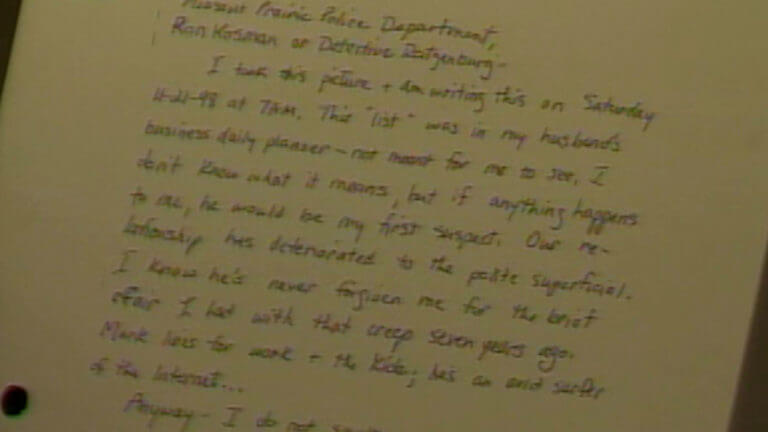 Pleasant Prairie Police Department,
Ron Kosman or Detective Ratzenburg-
I took this picture + am writing this on Saturday
11-21-98 at 7AM. This "list" was in my husband's
business daily planner-not meant for me to see. I
don't know what it means, but if anything happens
to me, he would be my first suspect. Our re-
lationship has deteriorated to the polite superficial.
I know he's never forgiven me for the brief
affair I had with that creep seven years ago.
Mark lives for work + the kids; he's an avid surfer
of the Internet...
Anyway- I do not